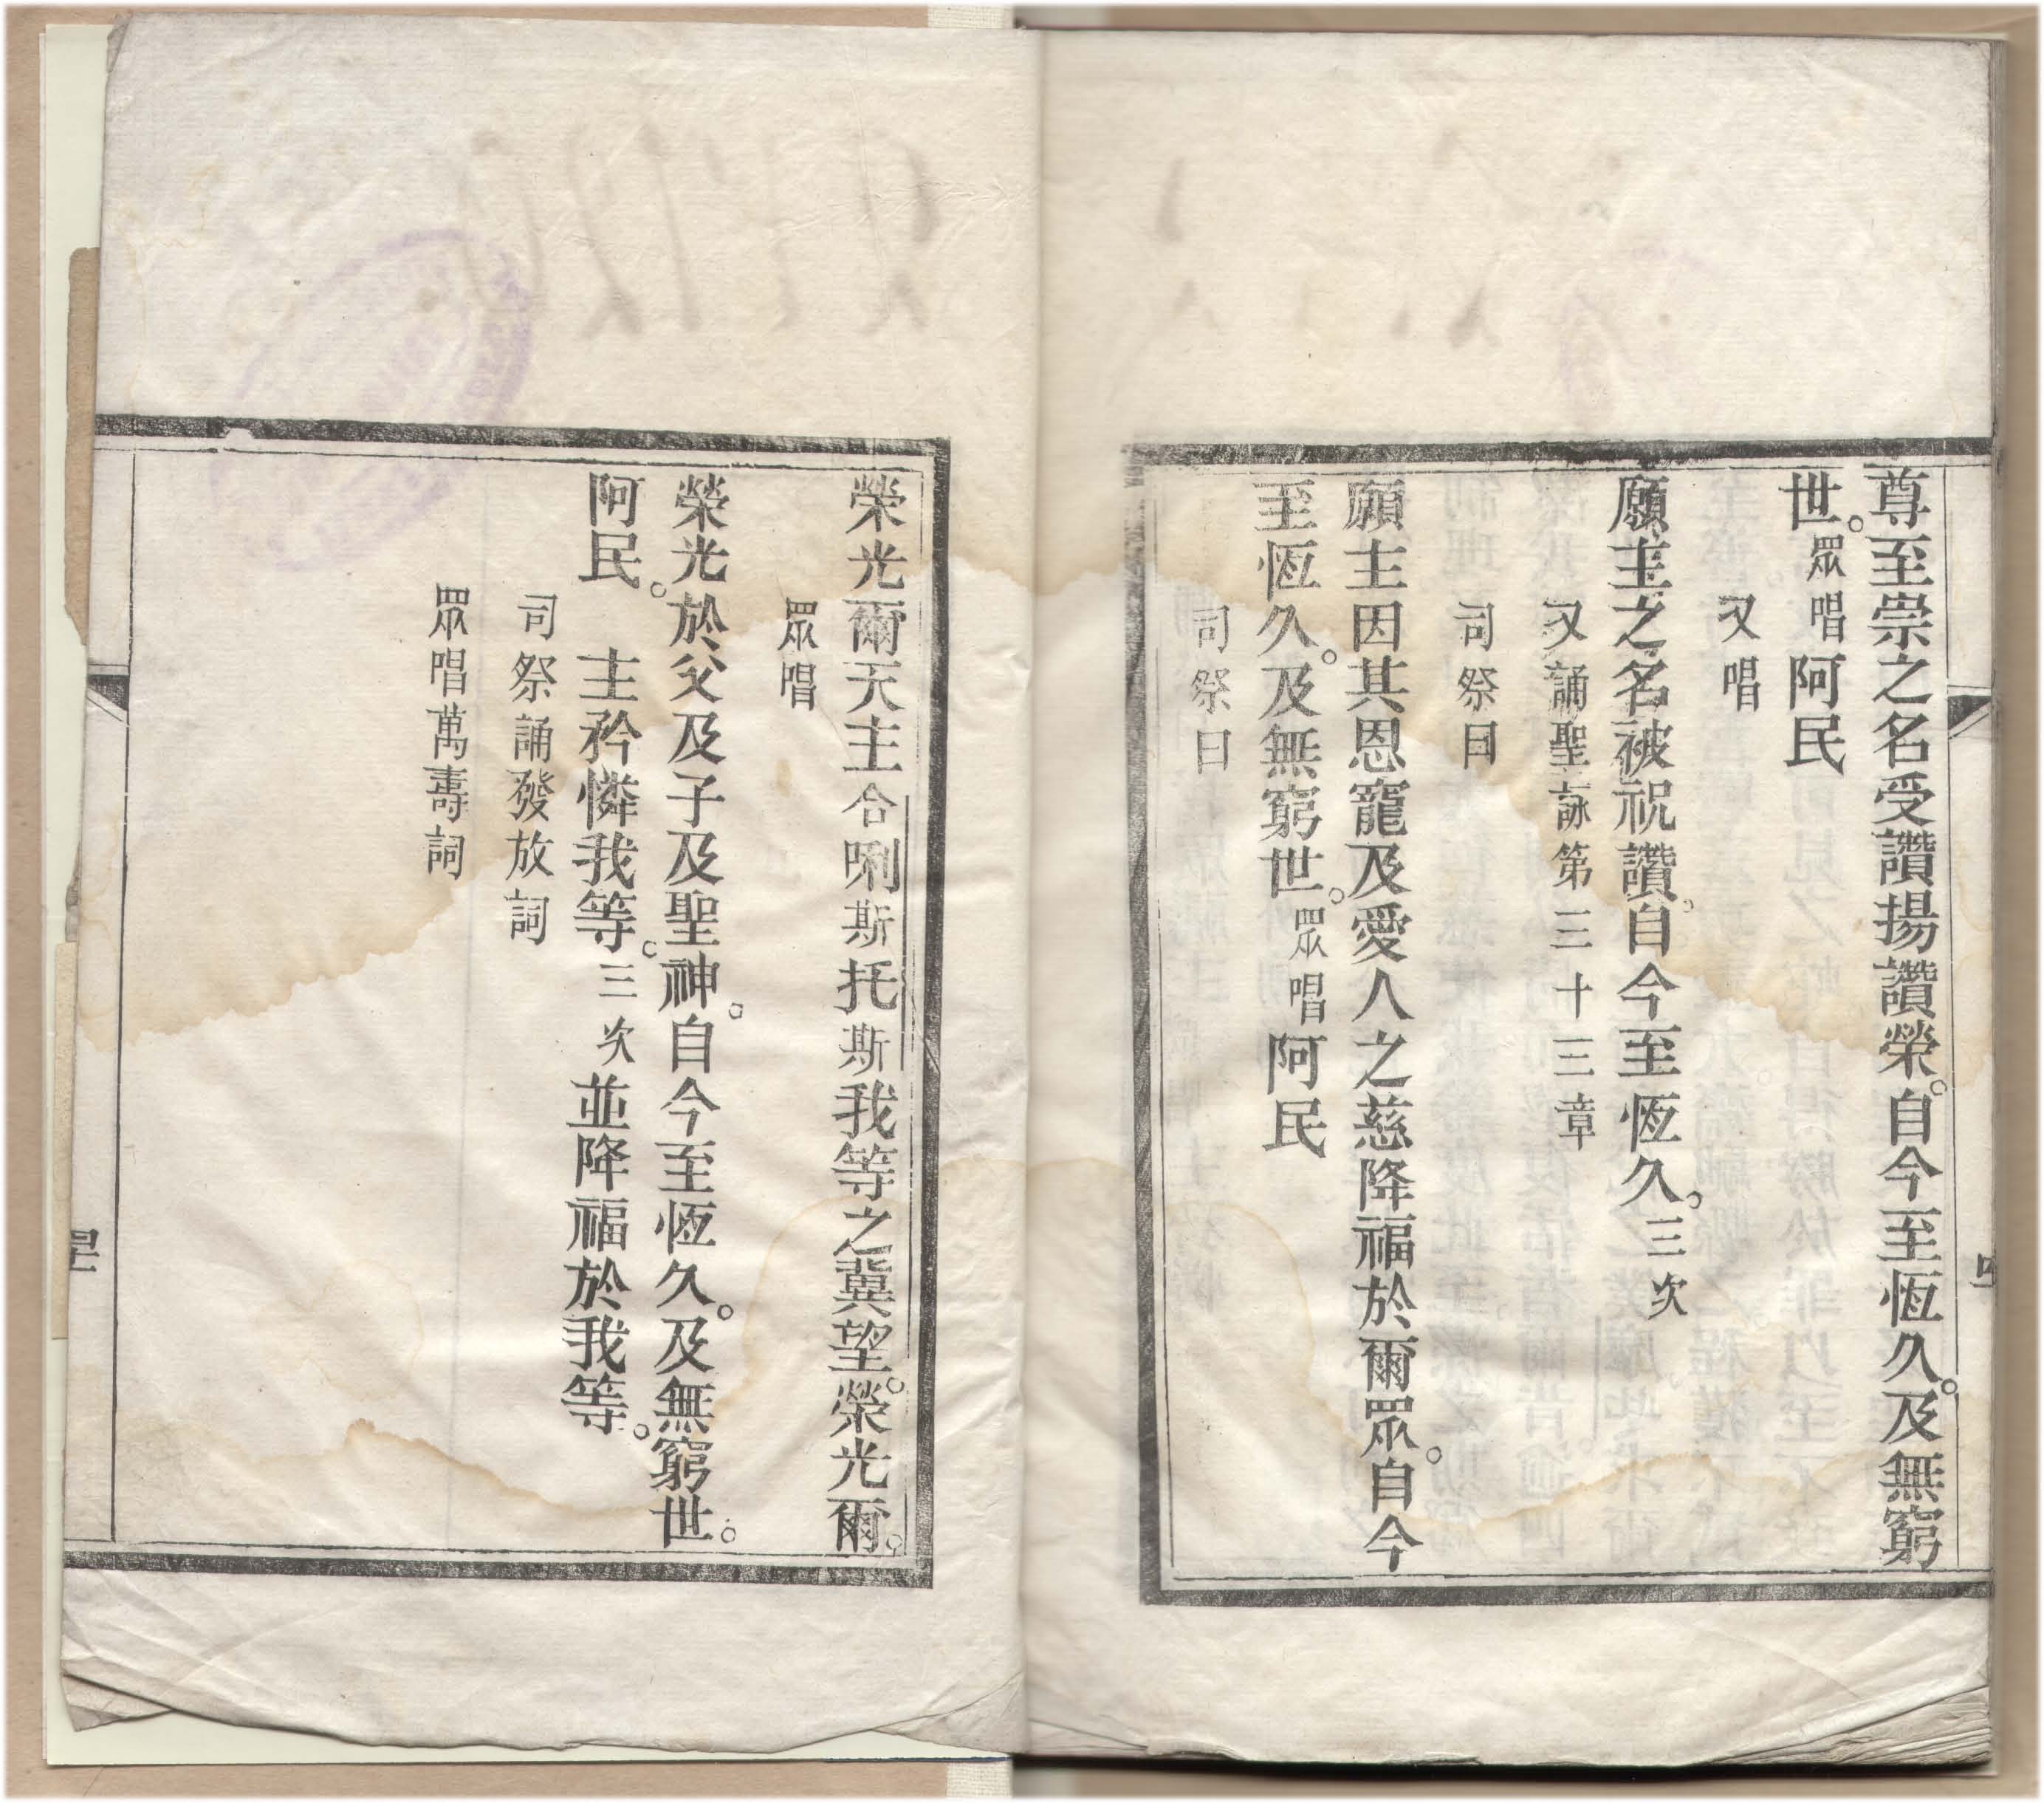 尊至崇之名受讚揚讚榮。自今至恆久。及無窮
世。眾唱阿民
又唱
願主之名被祝讚。自今至恆久。三次
又誦聖詠第三十三章
司祭曰
願主因其恩寵及愛人之慈降福於爾眾。自今
至恆久。及無窮世。眾唱阿民
司祭曰
榮光爾天主合唎斯托斯我等之冀望。榮光爾。
眾唱
榮光於父及子及聖神。自今至恆久。及無窮世。
阿民。主矜憐我等。三次並降福於我等。
司祭誦發放詞
眾唱萬壽詞